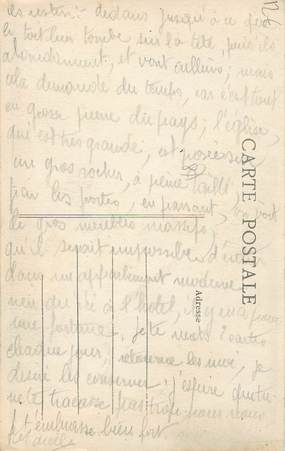 ils restent dedans jusqu'à ce que
le toit leur tombe sur la tête, puis ils
abandonnent, et vont ailleurs; mais
cela demande du temps, car c'est tout
en grosse pierre du pays; l'église,
qui est très grande, est posée sur
un gros rocher, à peine taillé
par les portes, en passant, on voit
de gros meubles massifs,
qu'il serait impossible d'
dans un appartement moderne
rien de à l'hôtel, il y en a pour
une fortune. Je te mets 2 cartes
chaque jour, les moi, je
désire les conserver; j'espère que tu
ne te tracasse pas trop
Je t'embrasse bien fort
CARTE POSTALE
Adresse